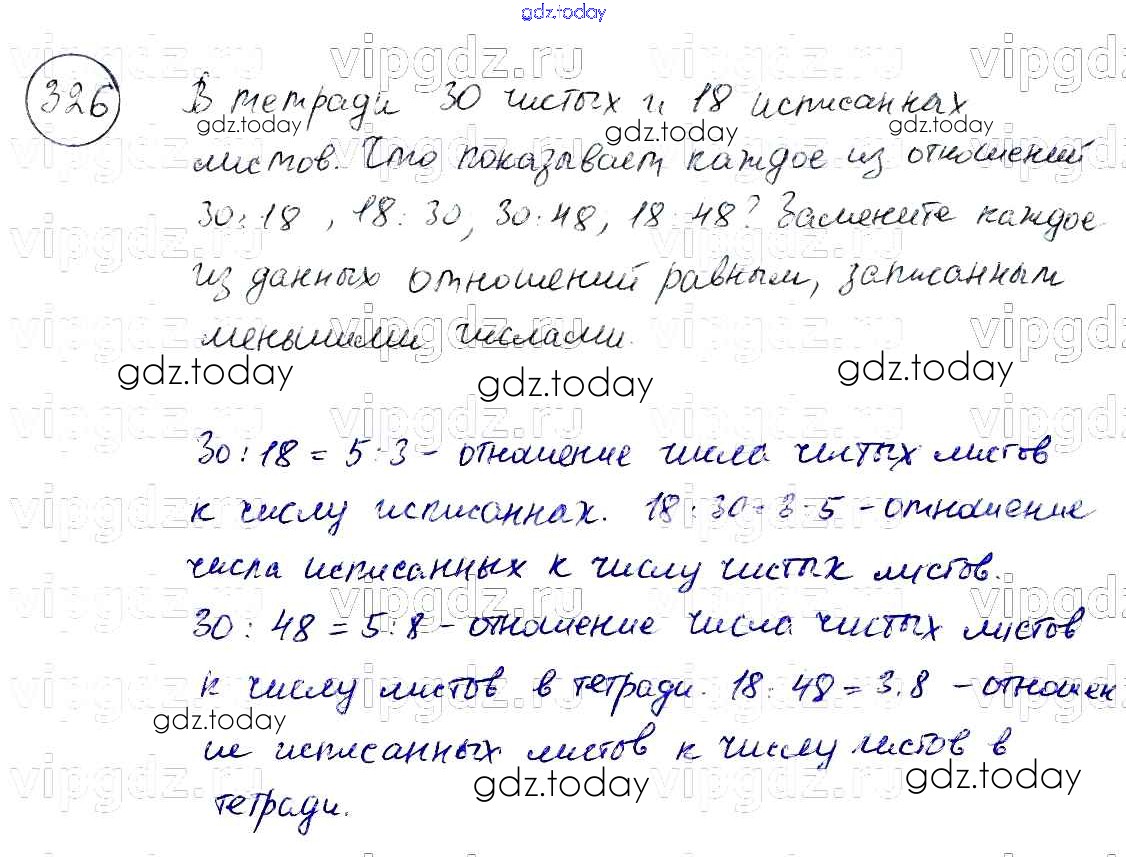 gdz.today
326 В тетради 30 чистых и 18 исписанных
листов. Что показывает каждое из отношений
30:18, 18:30, 30:48, 18:48? Замените каждое
из данных отношений равным, записанным
меньшими числами.
30:18 = 5:3 - отношение числа чистых листов
к числу исписанных. 18:30=3:5 - отношение
числа исписанных к числу чистых листов.
30:48 = 5:8 - отношение числа чистых листов
к числу листов в тетради. 18:48 = 3:8 - отношен
ие исписанных листов к числу листов в
тетради.